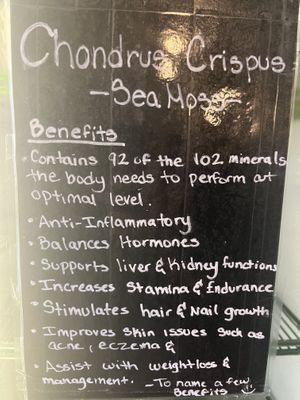 Chondrus Crispus
- Sea Moss -
Benefits
• Contains 92 of the 102 minerals
the body needs to perform at
optimal level.
• Anti-Inflammatory
• Balances Hormones
• Supports liver & Kidney functions
• Increases Stamina & Endurance
• Stimulates hair & Nail growth
• Improves Skin issues Such as
acne, eczema &
• Assist with weightloss &
management. - To name a few
Benefits